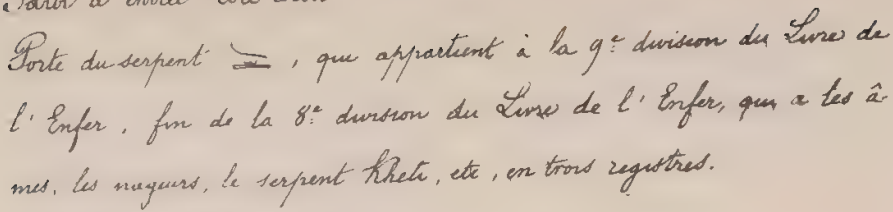 Porte du serpent , qui appartient à la 9e division du Livre de
l'Enfer, fin de la 8e division du Livre de l'Enfer, qui a les â
mes, les nageurs, le serpent Kheti, etc, en trois registres.